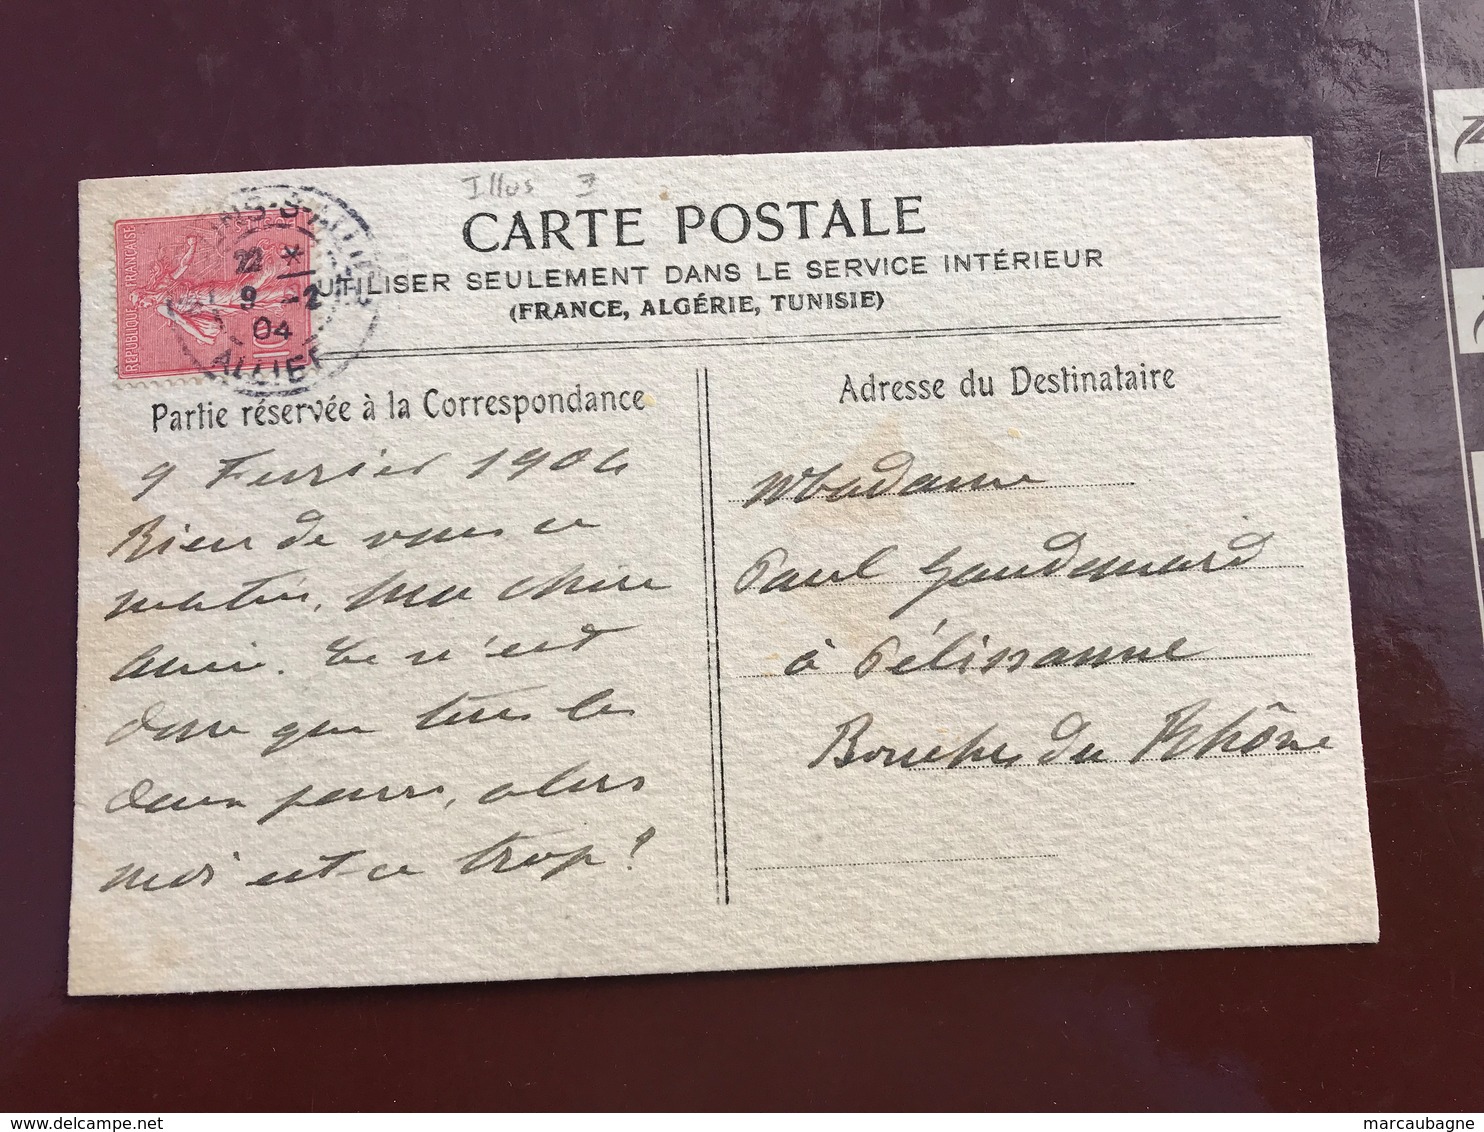 Illus
CARTE POSTALE
UTILISER SEULEMENT DANS LE SERVICE INTÉRIEUR
(FRANCE, ALGÉRIE, TUNISIE)
REPUBLIQUE FRANÇAISE
POSTES
10
22 *
9 - 2
04
ALLIER
Partie réservée à la Correspondance
9 Fevrier 1904
Rien de vous ce
matin, Ma chère
amie. Ce n'est
donc que tous les
deux jours, alors
moi est-ce trop?
Adresse du Destinataire
Madame
Paul Gaudemard
à Pélissanne
Bouches du Rhône
delcampe.net
marcaubagne